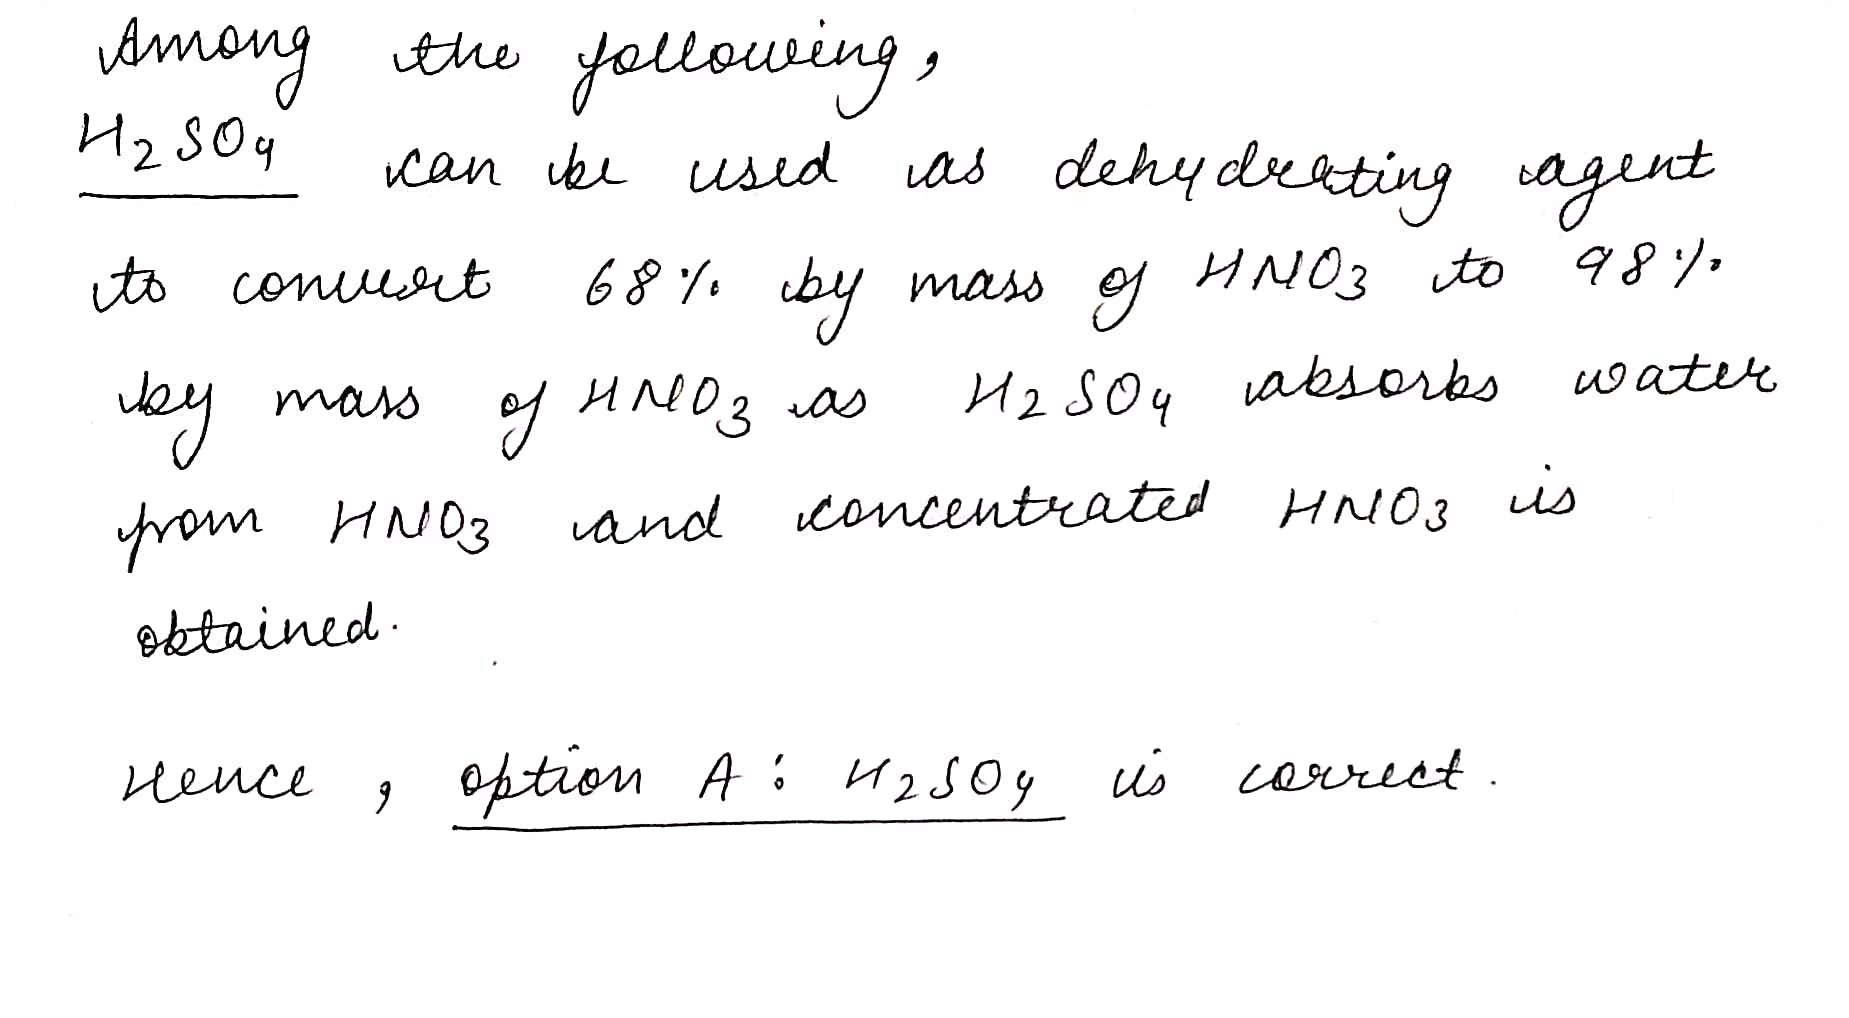 Among the following,
H2SO4 can be used as dehydrating agent
to convert 68% by mass of HNO3 to 98%
by mass of HNO3 as H2SO4 absorbs water
from HNO3 and concentrated HNO3 is
obtained.
Hence, option A: H2SO4 is correct.